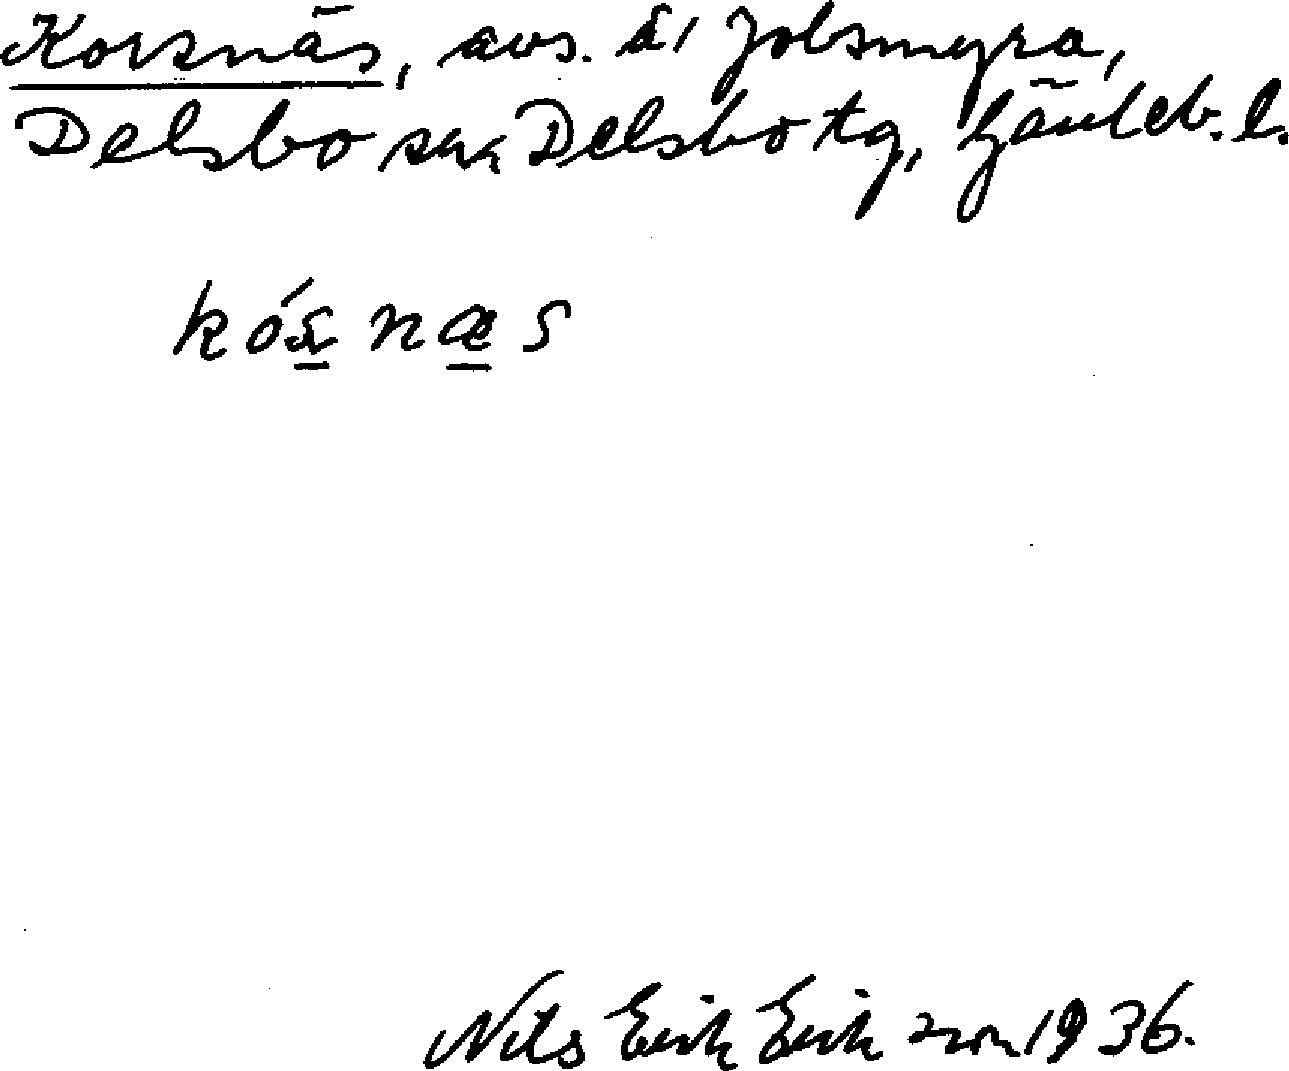 Korsnäs, avs. å Jobsmyra,
Delsbo sn, Delsbo tg, Gävleb. l.
kósnæs
Nils Erik Eriksson 1936.